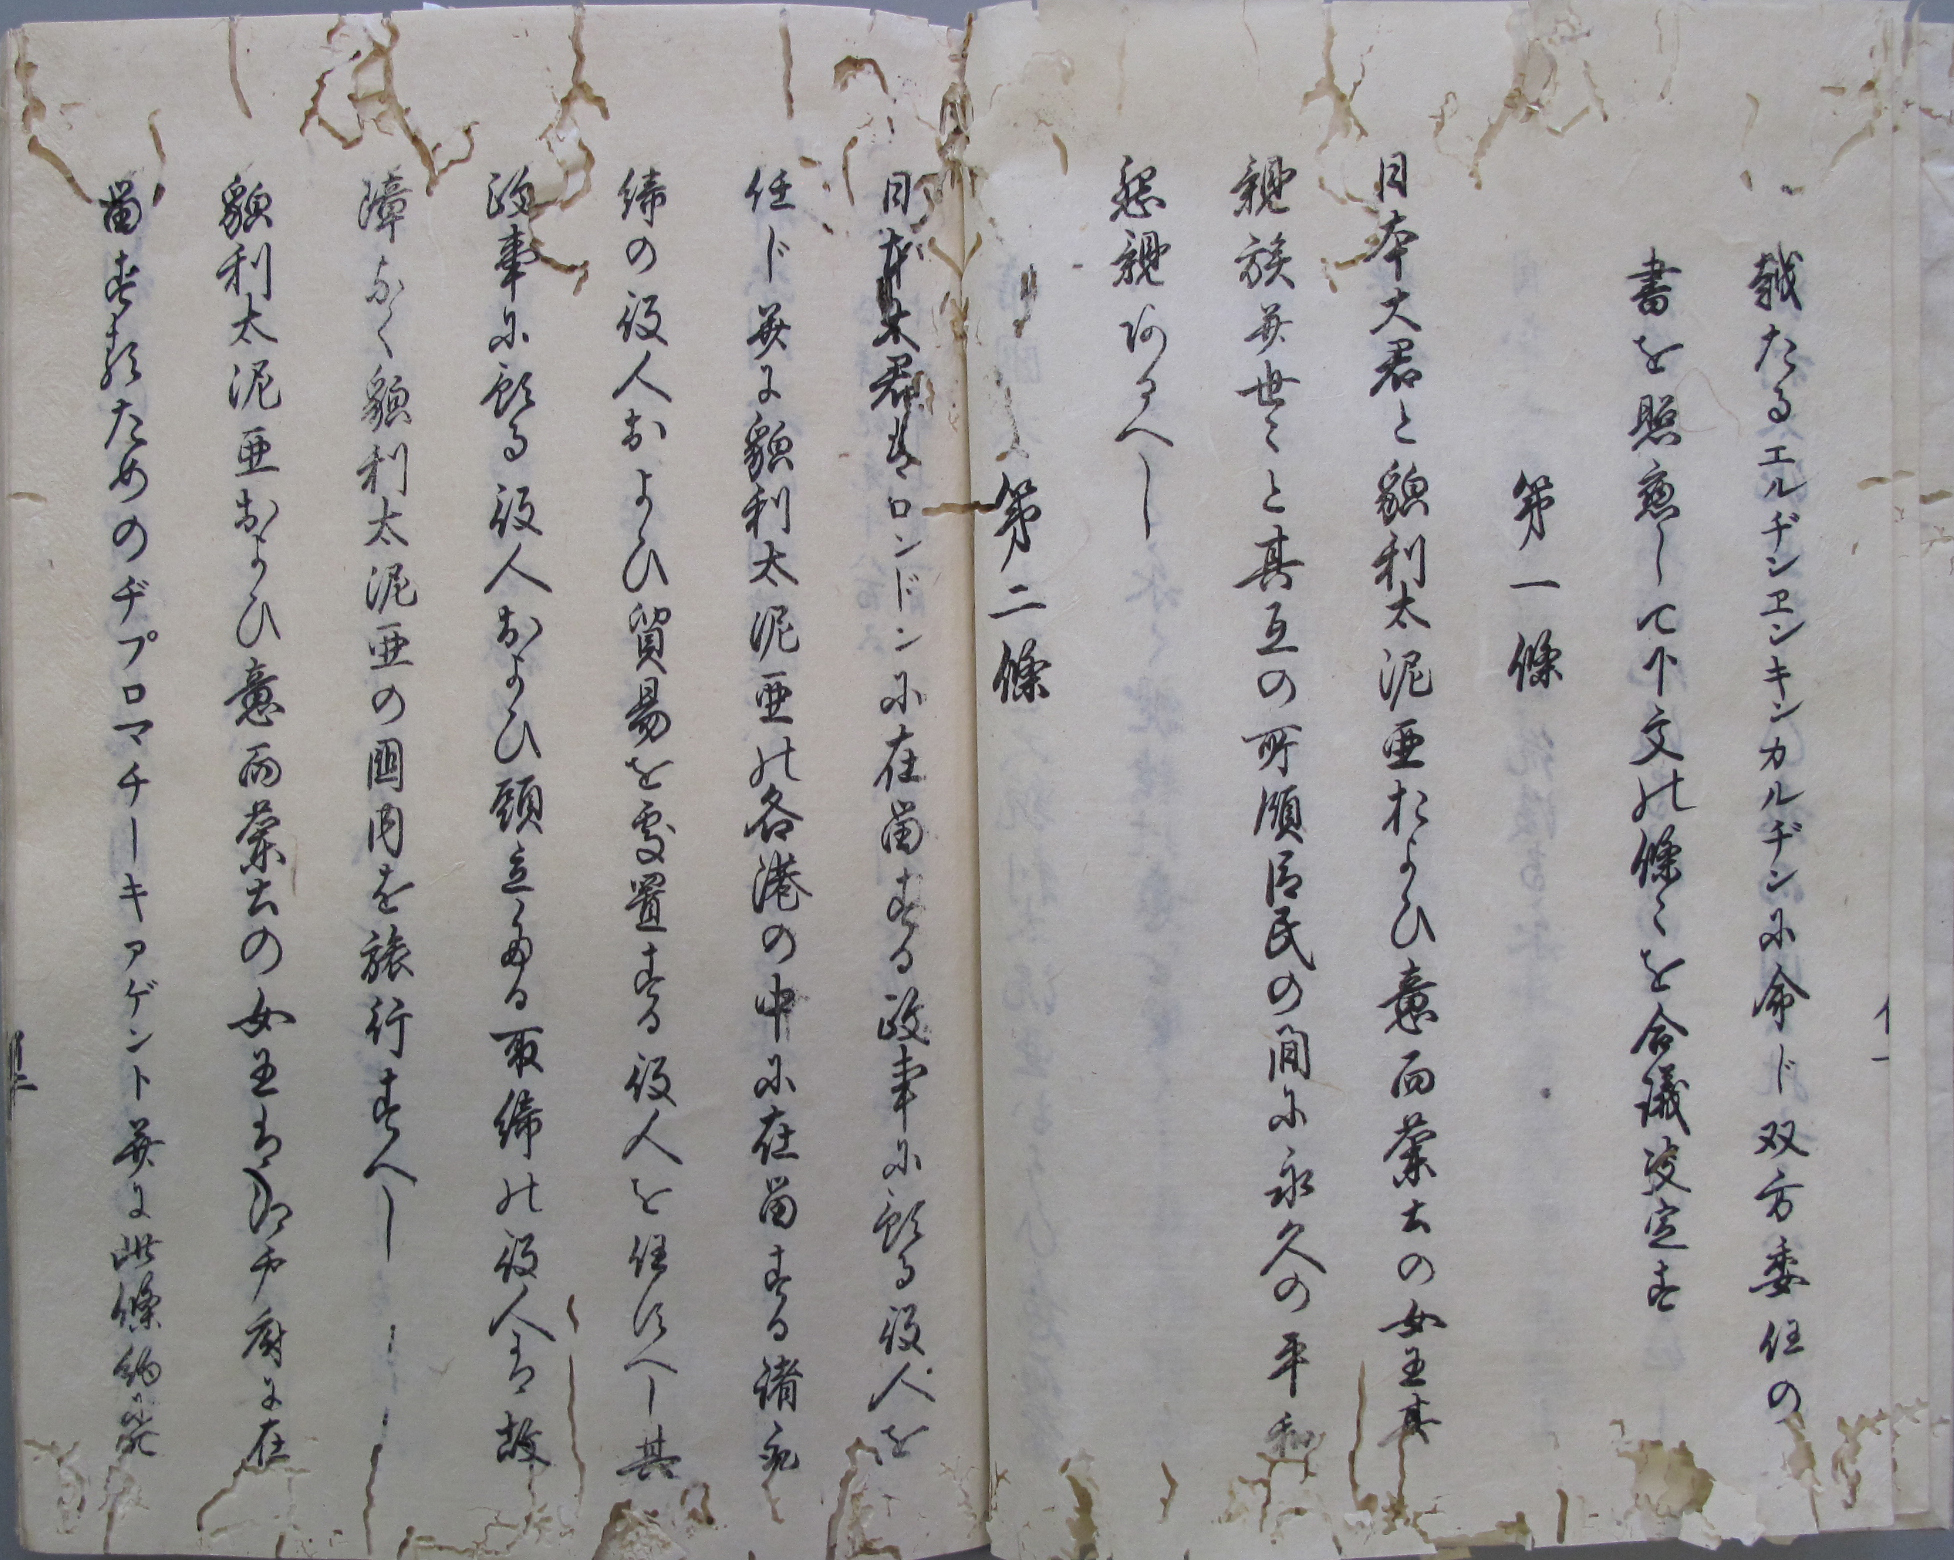 越たるエルヂンエンキンカルヂンに命ド双方委任の
書を照應して下文の條々を合議決定す
第一條
日本大君と貌利太泥亜およひ意而蘭士の女王其
親族并世々と其互の所領臣民の間に永久の平和
懇親あるへし
第二條
日本大君はロンドンに在留する政事に預る役人を
任ド并に貌利太泥亜の各港の中に在留する諸取
締の役人およひ貿易を處置する役人を任すへし其
政事に預る役人およひ頭立たる取締の役人は故
障なく貌利太泥亜の國内を旅行すへし
貌利太泥亜およひ意而蘭士の女王は江戸府に在
留するためのヂプロマチーキアゲント并に此條約に